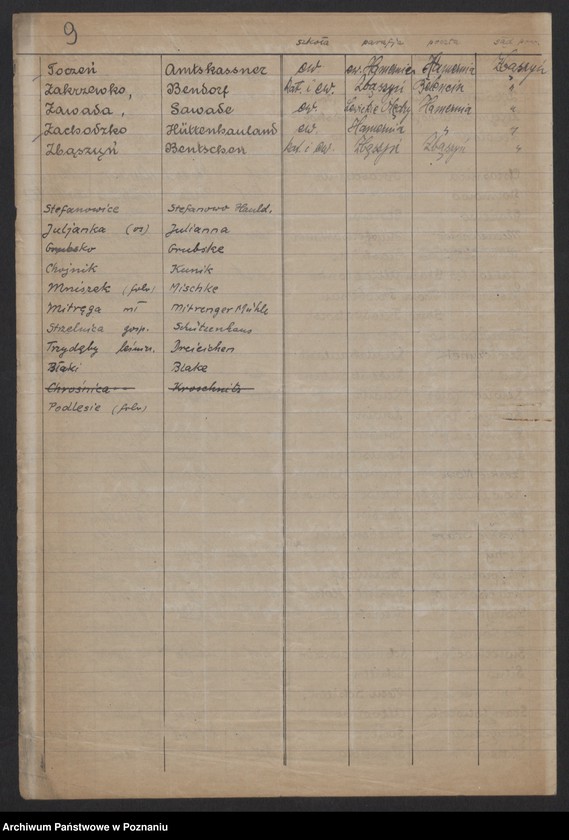 9
szkoła parafja poczta sąd pow.
Toczeń Amtskassner ew. ew. Hamernia Hamernia Zbąszyń
Zakrzewko, Bendorf kat. i ew. Zbąszyń "
Zawada, Sawade ew. Hamernia "
Zachodzko Hüttenhauland ew. Hamernia " "
Zbąszyń Bentschen kat. i ew. Zbąszyń Zbąszyń "
Stefanowice Stefanowo Hauld.
Juljanka (os) Julianna
Grubsko Grubske
Chojnik Kunik
Mniszek (folw) Mischke
Mitręga mł Mitrenger Mühle
Strzelnica gosp. Schützenhaus
Trzydęby leśnicz. Dreieichen
Błaki Blake
Chrośnica Kroschnitz
Podlesie (folw)
Archiwum Państwowe w Poznaniu